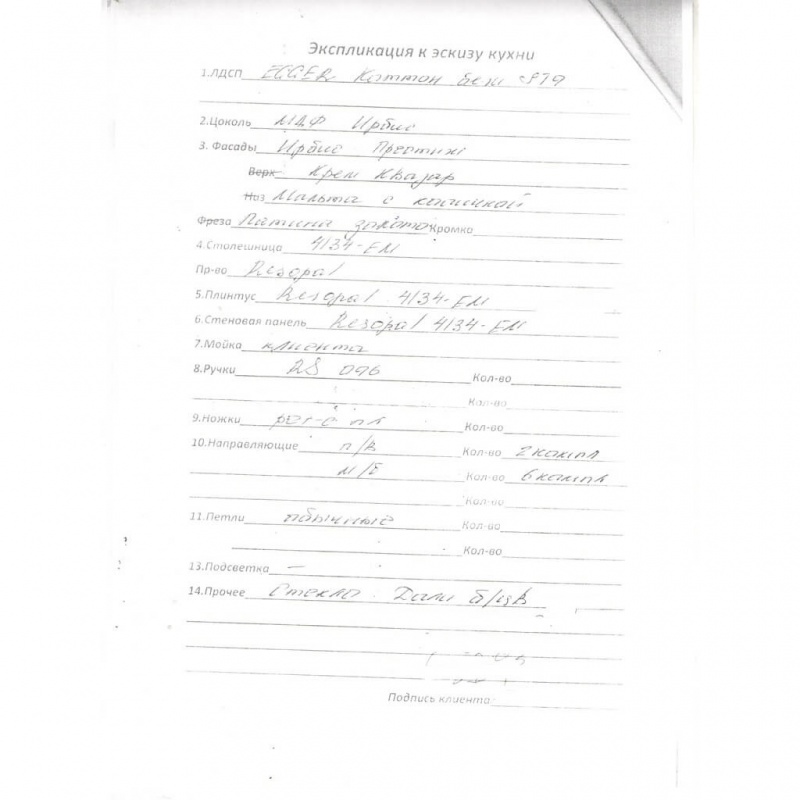 Экспликация к эскизу кухни
1.ЛДСП EGGER Коттон беж
2.Цоколь МДФ Ирбис
3. Фасады Ирбис Престиж
Верх Крем Квазар
Низ Мальта с
Фреза Патина золото Кромка
4.Столешница 4134-EM
Пр-во Rezopal
5.Плинтус Rezopal 4134-EM
6.Стеновая панель Rezopal 4134-EM
7.Мойка клиента
8.Ручки RS 096 Кол-во
Кол-во
9.Ножки рег-е пл Кол-во
10.Направляющие п/в Кол-во 2 компл
м/б Кол-во 6 компл
Кол-во
11.Петли обычные Кол-во
Кол-во
13.Подсветка –
14.Прочее Стекло Дали б/цв
Подпись клиента